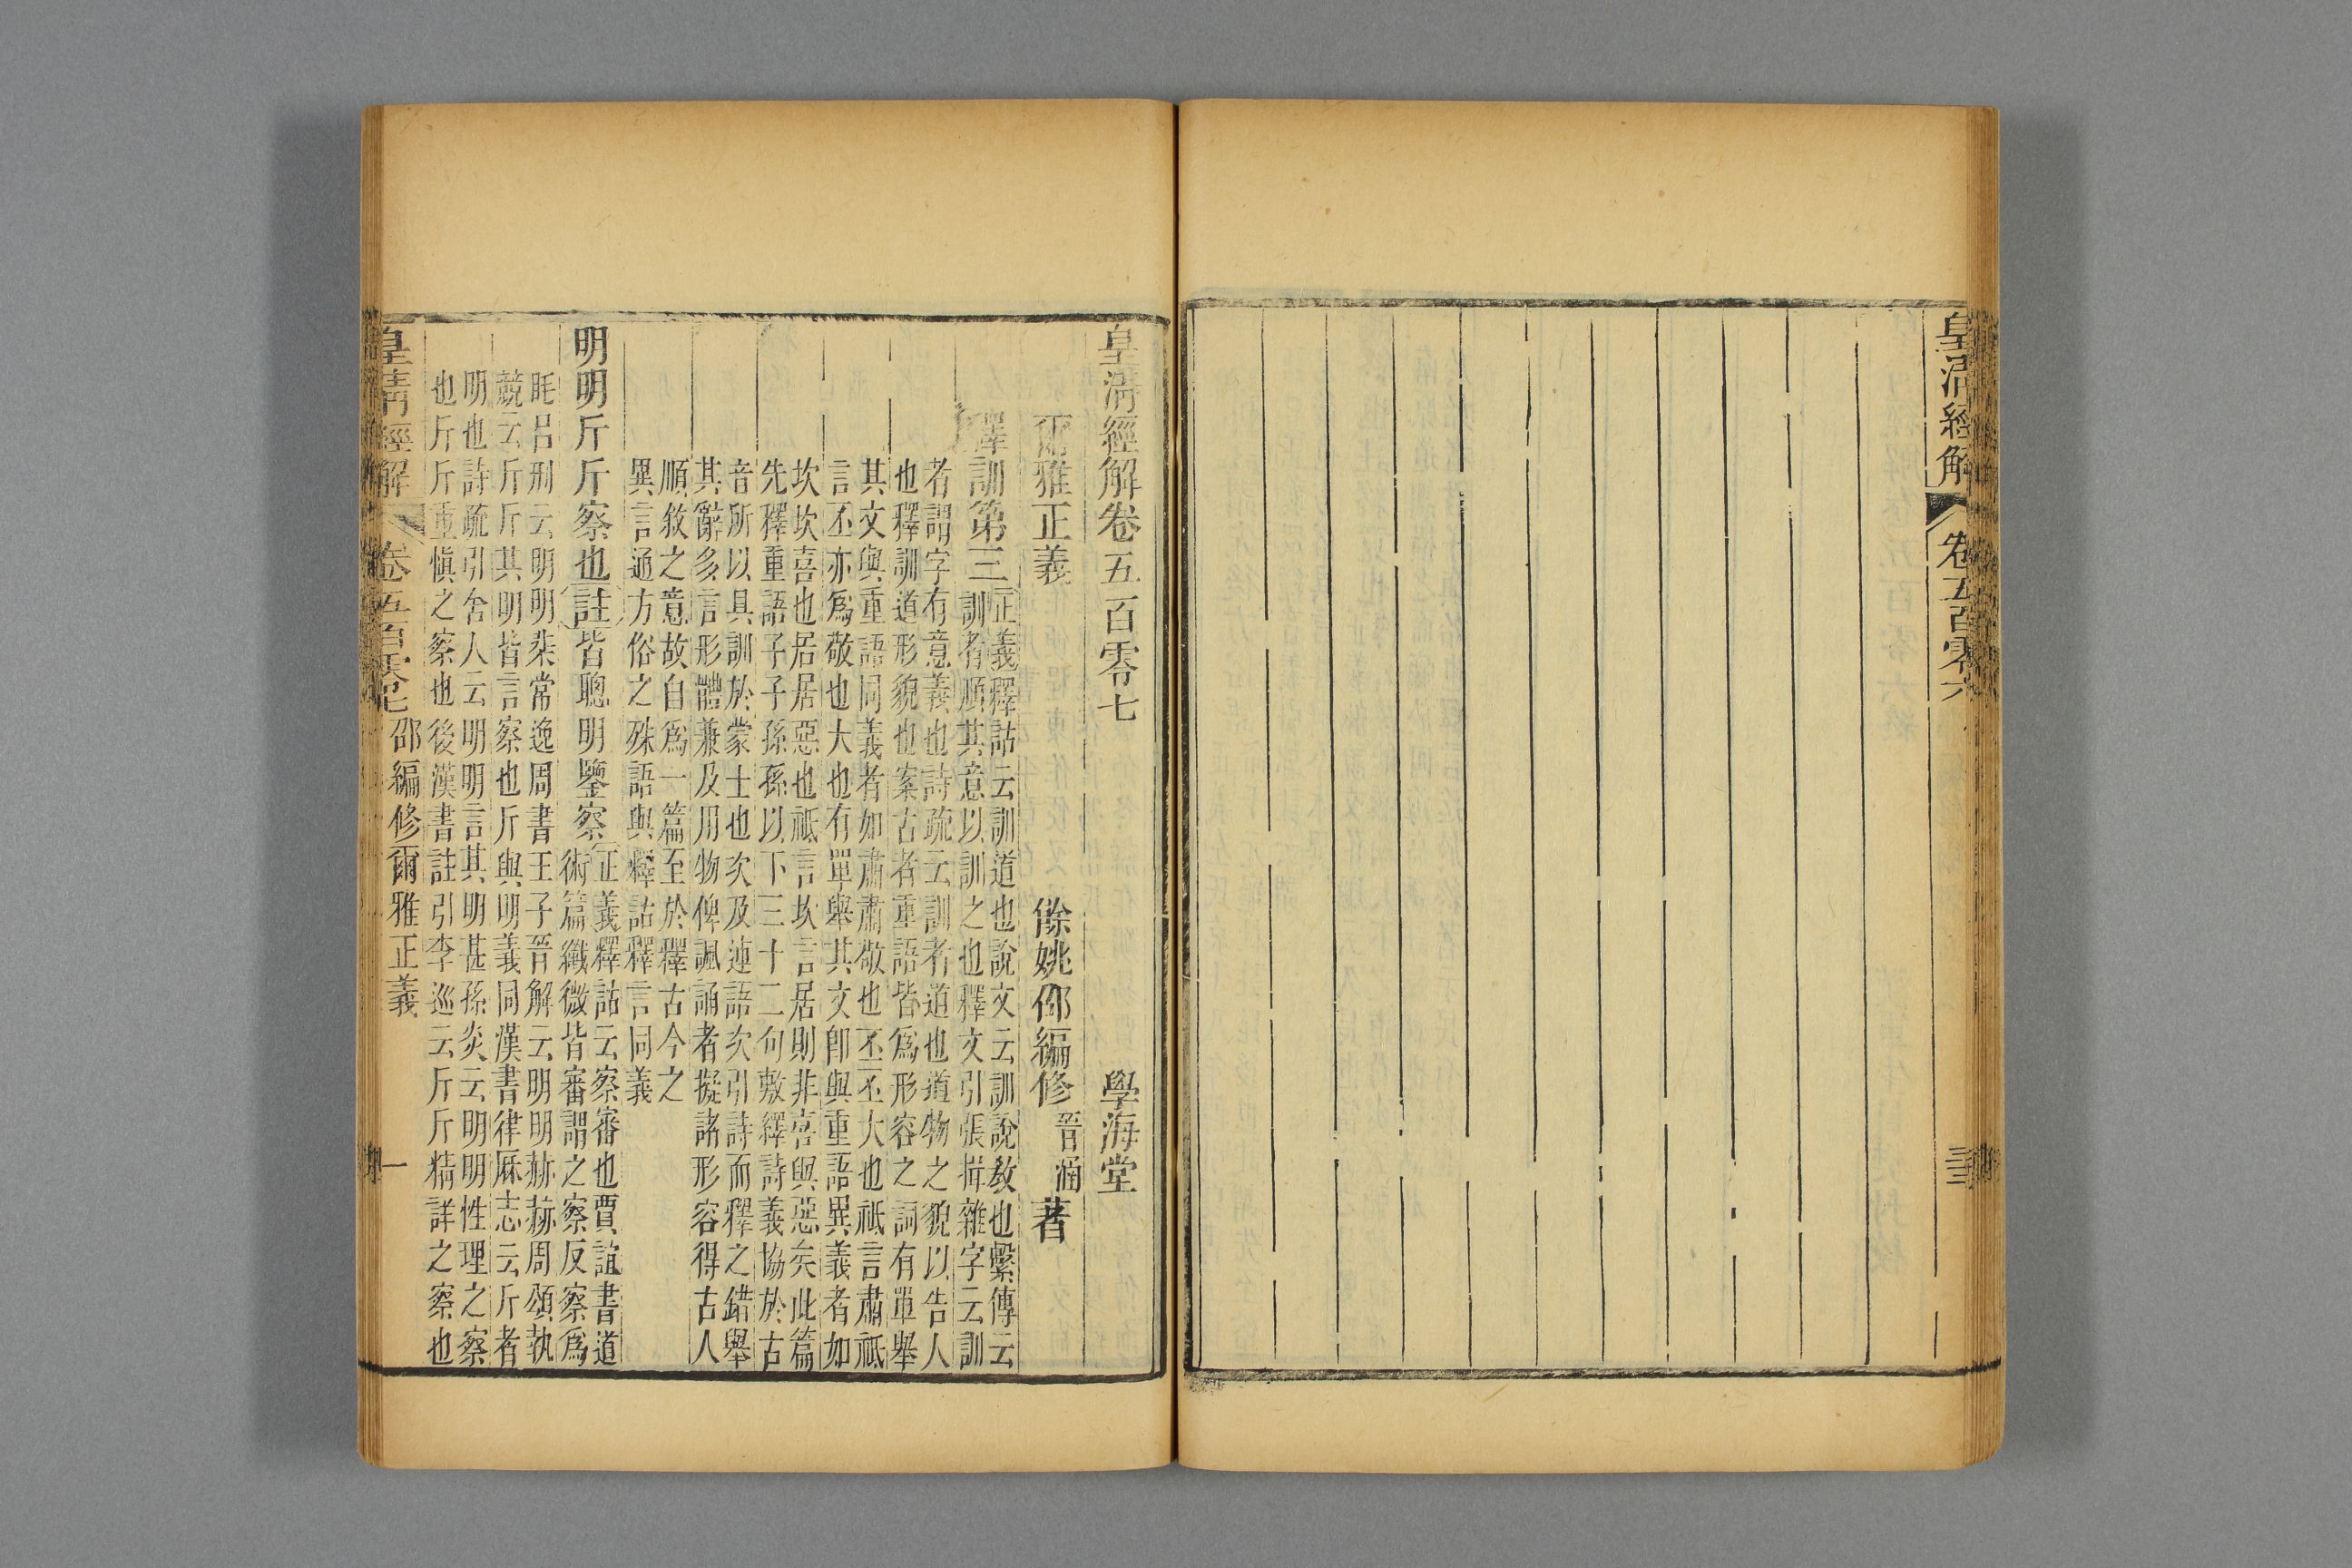 皇淸經解 卷五百零六 三
皇淸經解卷五百零七 學海堂
爾雅正義 餘姚邵編修晉涵著
釋訓第三
正義釋詁云訓道也說文云訓說敎也繫傳云
訓者順其意以訓之也釋文引張揖雜字云訓
者謂字有意義也詩疏云訓者道也道物之貌以告人
也釋訓道形貌也案古者重語皆爲形容之詞有單舉
其文與重語同義者如肅肅敬也丕丕大也祗言肅祗
言丕亦爲敬也大也有單舉其文卽與重語異義者如
坎坎喜也居居惡也祗言坎言居則非喜與惡矣此篇
先釋重語子子孫孫以下三十二句敷繹詩義協於古
音所以具訓於蒙士也次及連語次引詩而釋之錯舉
其辭多言形體兼及用物俾諷誦者擬諸形容得古人
順敘之意故自爲一篇至於釋古今之
異言通方俗之殊語與釋詁釋言同義
明明斤斤察也註皆聰明鑒察
正義釋詁云察審也賈誼書道
術篇纖微皆審謂之察反察爲
眊呂刑云明明棐常逸周書王子晉解云明明赫赫周頌執
競云斤斤其明皆言察也斤與明義同漢書律厤志云斤者
明也詩疏引舍人云明明言其明甚孫炎云明明性理之察
也斤斤重愼之察也後漢書註引李巡云斤斤精詳之察也
皇淸經解 卷五百零七 邵編修爾雅正義 一